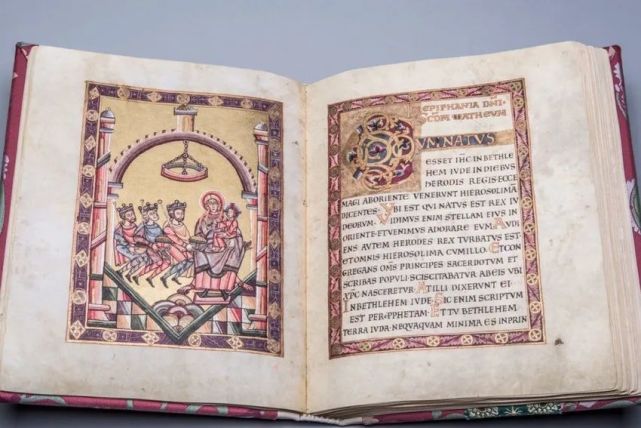 EPIPHANIA DNI·
SCDM MATHEUM
CUM NATUS
ESSET IHC IN BETHLE
HEM IUDE IN DIEBUS
HERODIS REGIS·ECCE
MAGI ABORIENTE VENERUNT HIEROSOLIMA
DICENTES· UBI EST QUI NATUS EST REX IU
DEORUM· VIDIMUS ENIM STELLAM EIUS IN
ORIENTE·ETVENIMUS ADORARE EUM· AUDI
ENS AUTEM HERODES REX TURBATUS EST
ETOMNIS HIEROSOLIMA CUMILLO· ETCON
GREGANS OMS PRINCIPES SACERDOTUM ET
SCRIBAS POPULI·SCISCITABATUR ABEIS UBI
XPC NASCERETUR· ATILLI DIXERUNT EI·
INBETHLEHEM IUDE· SIC ENIM SCRIPTUM
EST PER·PPHETAM· ET TU BETHLEHEM
TERRA IUDA·NEQUAQUAM MINIMA ES INPRIN